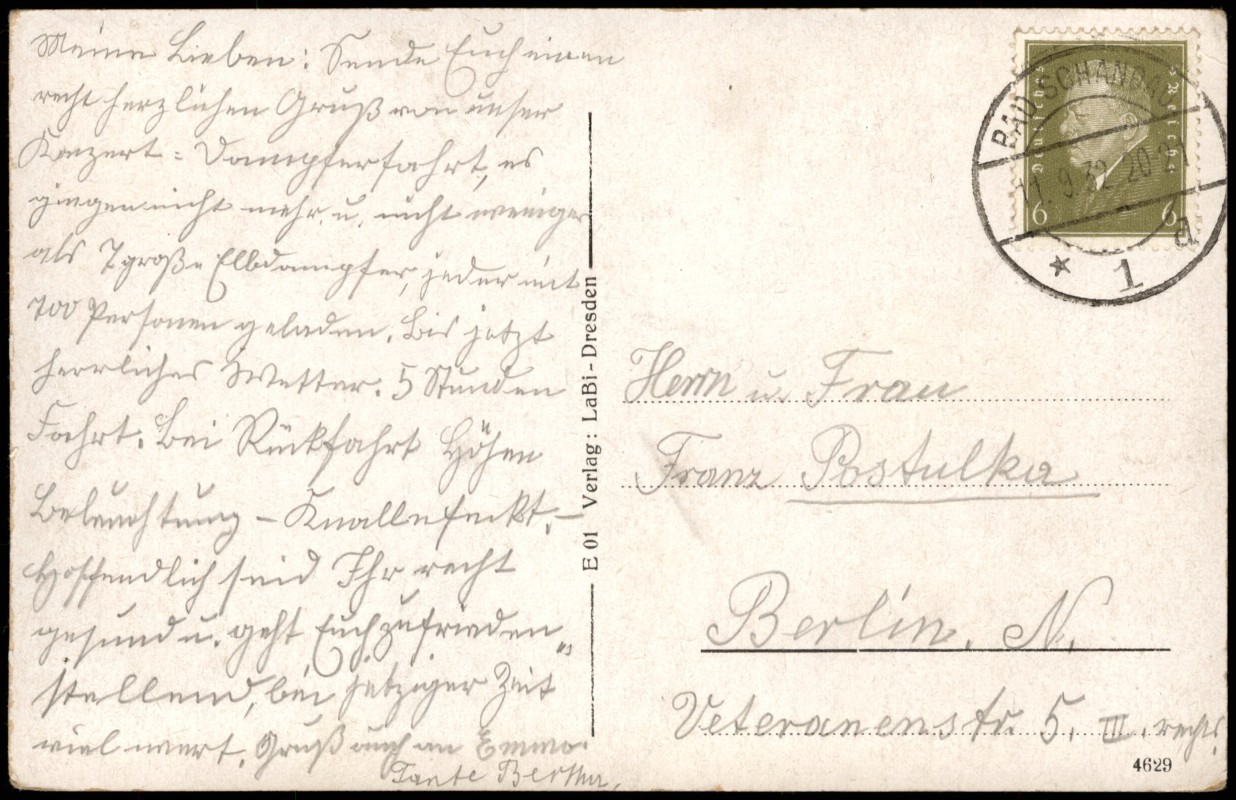 Meine Lieben: Sende Euch einen
recht herzlichen Gruß von unser
Konzert = Dampferfahrt, es
gingen nicht mehr u. nicht weniger
als 7 große Elbdampfer, jeder mit
700 Personen geladen. Bis jetzt
herrliches Wetter. 5 Stunden
Fahrt. Bei Rückfahrt Höhen
Beleuchtung – Knalleffekt. –
Hoffendlich seid Ihr recht
gesund u. geht Euch zufrieden„
stellend, bei jetziger Zeit
viel wert. Gruß auch an Emma.
Tante Bertha.
E 01 Verlag: LaBi-Dresden
Deutsches Reich
6 6
BAD SCHANDAU
11.9.32.20-21
* 1 a
Herrn u. Frau
Franz Postulka
Berlin. N.
Veteranenstr. 5. III. rechts.
4629